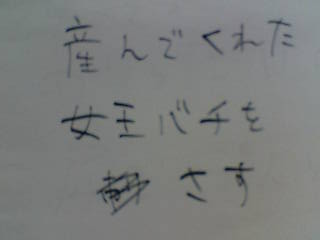 産んでくれた
女王バチを
さす